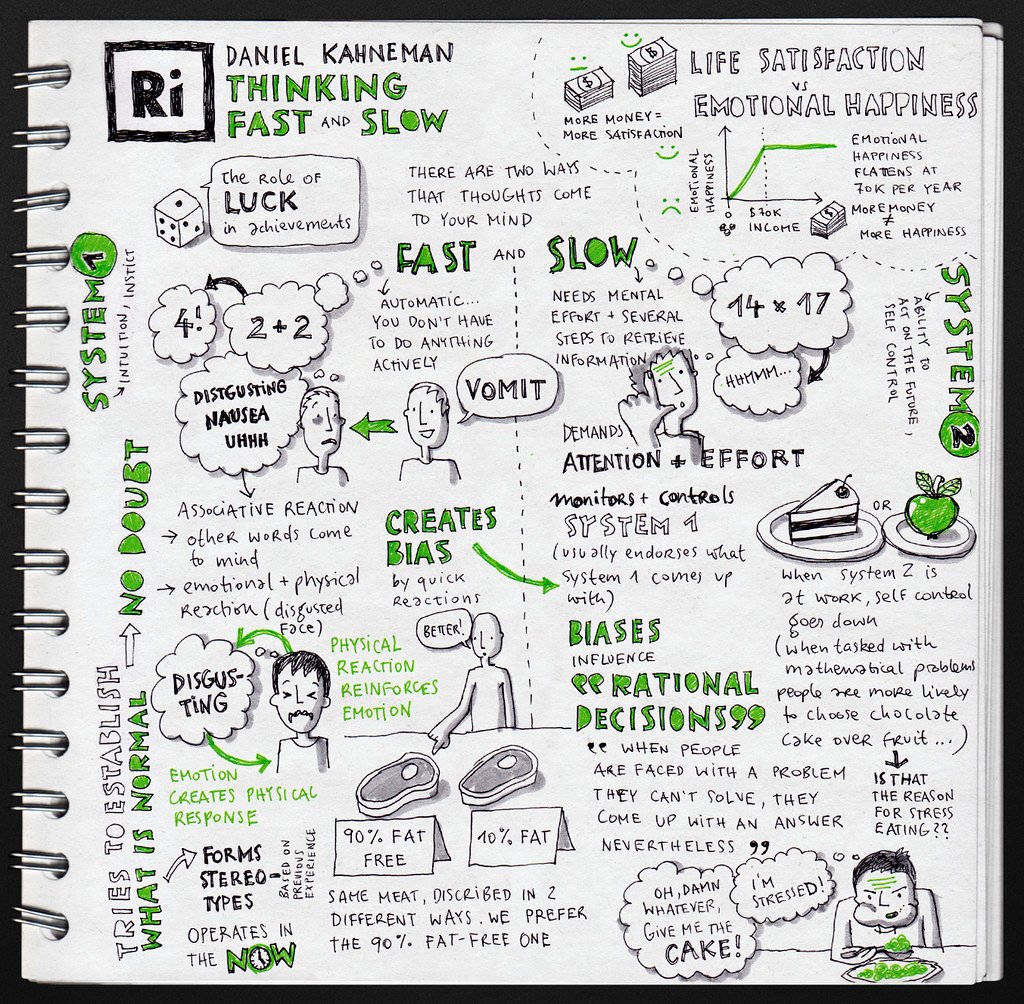 Ri
DANIEL KAHNEMAN
THINKING
FAST AND SLOW
The role of
LUCK
in achievements
THERE ARE TWO WAYS
THAT THOUGHTS COME
TO YOUR MIND
FAST AND SLOW
MORE MONEY =
MORE SATISFACTION
LIFE SATISFACTION
VS
EMOTIONAL HAPPINESS
EMOTIONAL
HAPPINESS
0
$70K
INCOME
EMOTIONAL
HAPPINESS
FLATTENS AT
70K PER YEAR
MORE MONEY
≠
MORE HAPPINESS
SYSTEM 1
INTUITION, INSTICT
4!
2 + 2
AUTOMATIC...
YOU DON'T HAVE
TO DO ANYTHING
ACTIVELY
DISTGUSTING
NAUSEA
UHHH
VOMIT
ASSOCIATIVE REACTION
→ other words come
to mind
→ emotional + physical
reaction (disgusted
face)
CREATES
BIAS
by quick
reactions
DISGUS-
TING
PHYSICAL
REACTION
REINFORCES
EMOTION
EMOTION
CREATES PHYSICAL
RESPONSE
BETTER!
90% FAT
FREE
10% FAT
SAME MEAT, DISCRIBED IN 2
DIFFERENT WAYS. WE PREFER
THE 90% FAT-FREE ONE
TRIES TO ESTABLISH
WHAT IS NORMAL
NO DOUBT
FORMS
STEREO-
TYPES
BASED ON
PREVIOUS
EXPERIENCE
OPERATES IN
THE NOW
NEEDS MENTAL
EFFORT + SEVERAL
STEPS TO RETRIEVE
INFORMATION
14 x 17
HHMMM...
SYSTEM 2
ABILITY TO
ACT ON THE FUTURE,
SELF CONTROL
DEMANDS
ATTENTION + EFFORT
monitors + controls
SYSTEM 1
(usually endorses what
system 1 comes up
with)
OR
when system 2 is
at work, self control
goes down
(when tasked with
mathematical problems
people are more likely
to choose chocolate
cake over fruit...)
IS THAT
THE REASON
FOR STRESS
EATING??
BIASES
INFLUENCE
"RATIONAL
DECISIONS"
" WHEN PEOPLE
ARE FACED WITH A PROBLEM
THEY CAN'T SOLVE, THEY
COME UP WITH AN ANSWER
NEVERTHELESS "
OH, DAMN
WHATEVER,
GIVE ME THE
CAKE!
I'M
STRESSED!